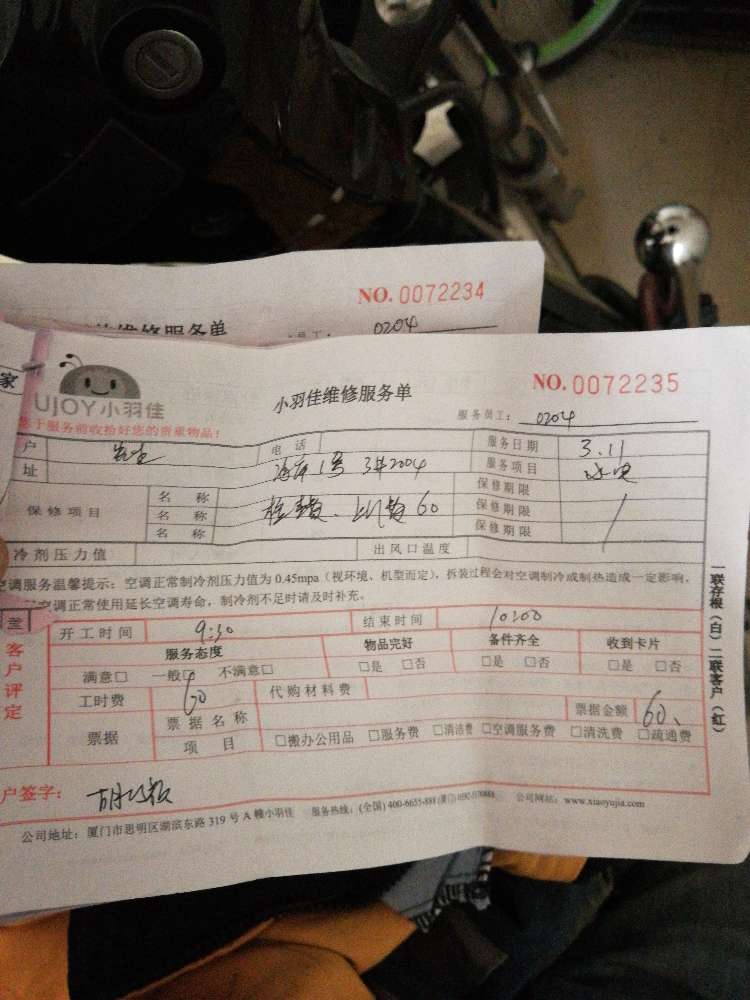 NO. 0072234
维修服务单
0204
家
UJOY小羽佳
小羽佳维修服务单
NO. 0072235
于服务前收拾好您的贵重物品!
服务员工: 0204
户 电话 服务日期 3.11
址 1号 3#2004 服务项目
保修项目 名称 保修期限
名称 60 保修期限
名称 保修期限
冷剂压力值 出风口温度
空调服务温馨提示:空调正常制冷剂压力值为 0.45mpa(视环境、机型而定),拆装过程会对空调制冷或制热造成一定影响。
空调正常使用延长空调寿命,制冷剂不足时请及时补充。
开工时间 9:30 结束时间 10:00
客户评定
服务态度 物品完好 备件齐全 收到卡片
满意□ 一般□ 不满意□ □是 □否 □是 □否 □是 □否
工时费 60 代购材料费
票据 票据名称 票据金额 60、
项目 □搬办公用品 □服务费 □清洁费 □空调服务费 □清洗费 □疏通费
户签字:
公司地址:厦门市思明区湖滨东路 319 号 A 幢小羽佳 服务热线:(全国) 400-6655-888 (厦门) 公司网站:www.xiaoyujia.com
一联存根(白)二联客户(红)